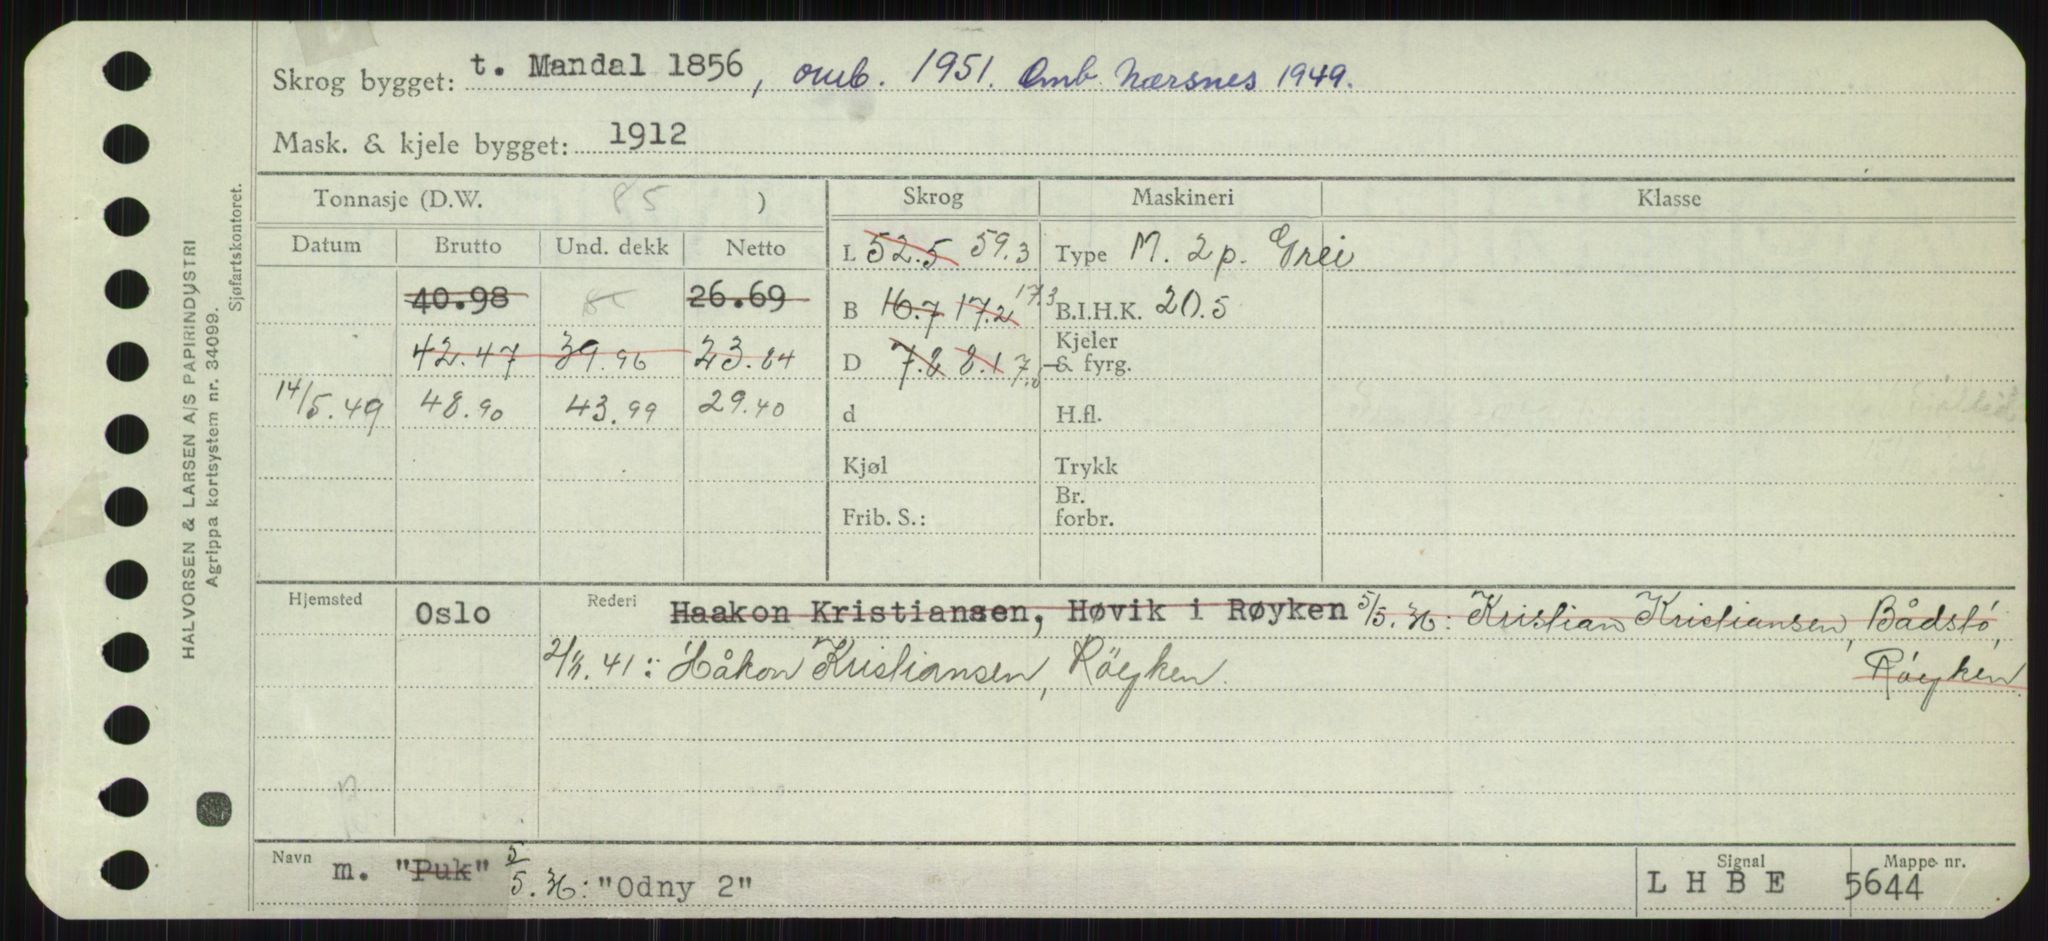 Skrog bygget: t. Mandal 1856, omb. 1951. Omb. Nærsnes 1949.
Mask. & kjele bygget: 1912
Tonnasje (D.W. 85 ) Skrog Maskineri Klasse
Datum Brutto Und. dekk Netto L 52.5 59.3 Type M. 2 p. Grei
40.98 26.69 B 16.7 17.2 17.3 B.I.H.K. 20.5
42.47 39.96 23.84 D 7.8 8.1 Kjeler & fyrg.
14/5.49 48.90 43.99 29.40 d H.fl.
Kjøl Trykk
Frib. S.: Br. forbr.
Hjemsted Oslo Rederi Haakon Kristiansen, Høvik i Røyken 5/5.36: Kristian Kristiansen, Bådstö,
Röyken.
41: Håkon Kristiansen, Röyken.
Navn m. "Puk" 5/5.36: "Odny 2" Signal L H B E Mappe nr. 5644
HALVORSEN & LARSEN A/S PAPIRINDUSTRI
Agrippa kortsystem nr. 34099.
Sjøfartskontoret.